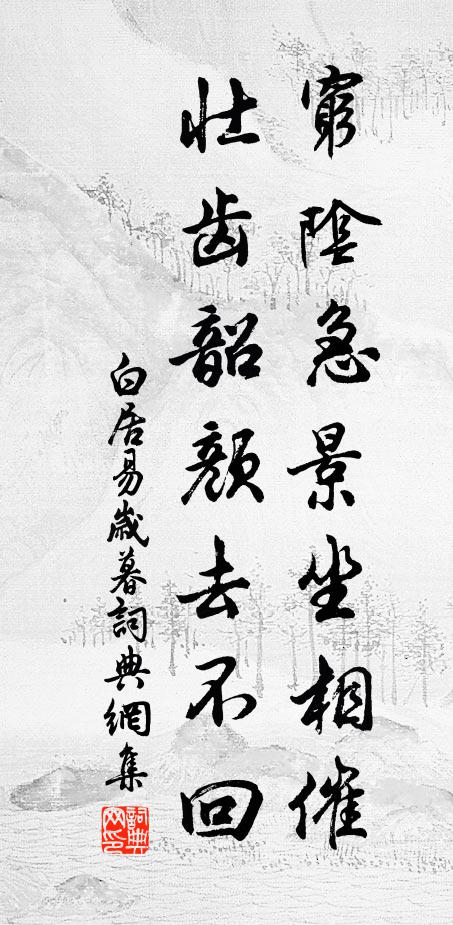 窮陰急景坐相催
壯齒韶顏去不回
白居易歲暮詞典網集
詞典網印